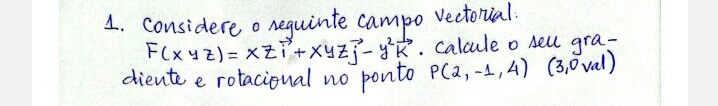 1. Considere o seguinte campo vectorial.
F(x y z) = xz i⃗ + xyz j⃗ - y² k⃗. Calcule o seu gra-
diente e rotacional no ponto P(2, -1, 4) (3,0 val)